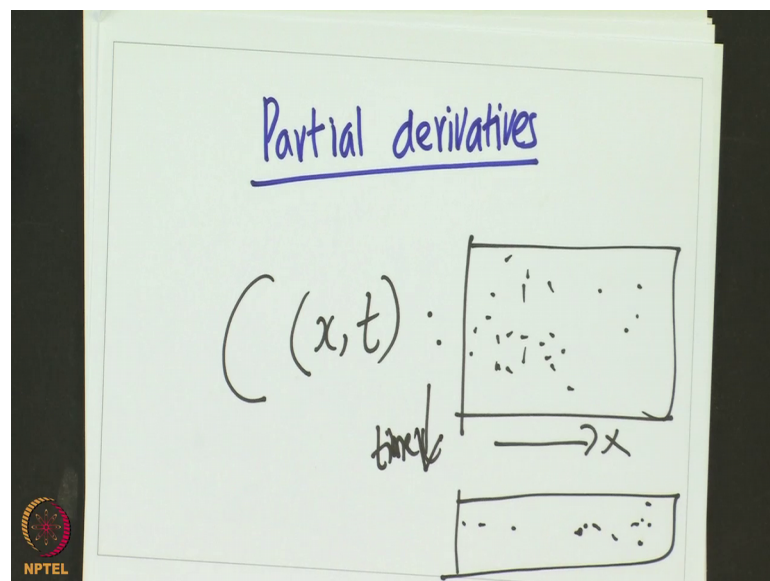 Partial derivatives
C (x,t) :
time
x
NPTEL